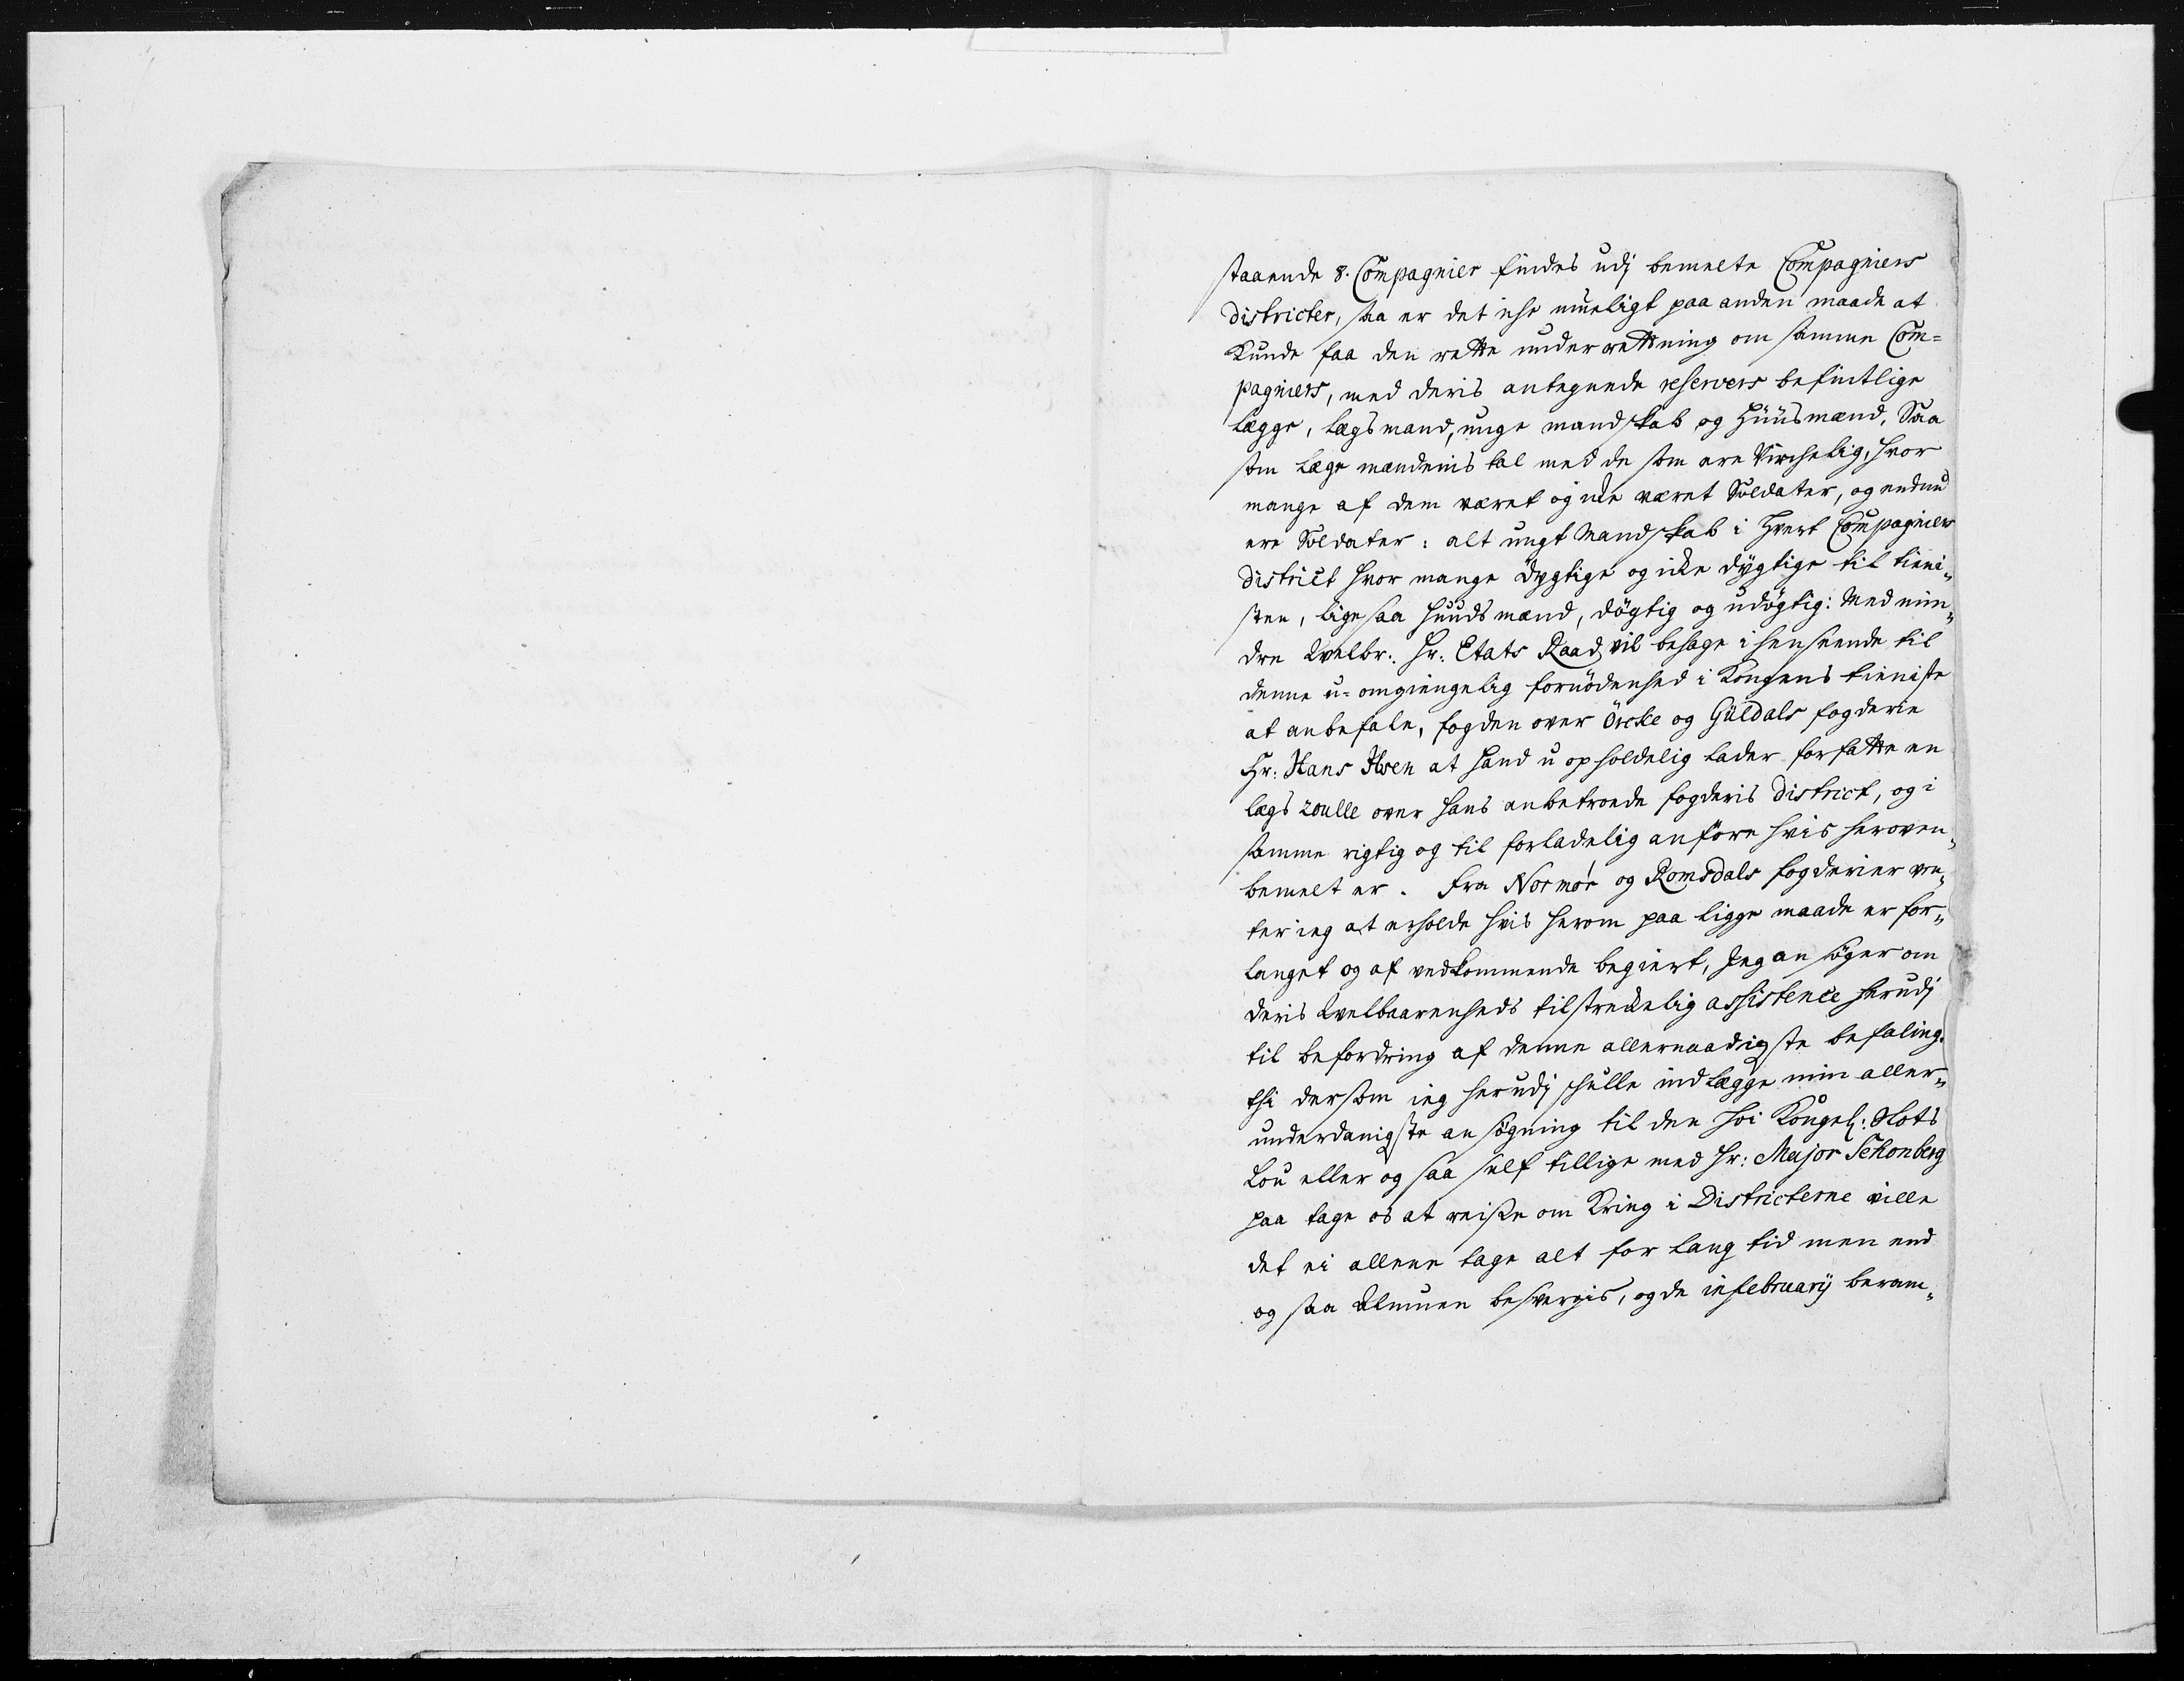 staaende 8. Compagnier findes udj bemelte Compagniers
districter, saa er det iche mueligt paa anden maade at
Kunde faa den rette underrettning om samme Com=
pagniers, med deris anhegnede reservers befintlige
Lægge, Lægsmand, unge mandskab og Huusmænd. Saa
som Læge mændenis tal med de som ere Virchelig, hvor
mange af dem været og icke været Soldater, og endnu
ere Soldater: alt ungt Mandskab i Hvert Compagniers
district hvor mange dygtige og icke dygtige til tieni„
sten, ligesaa Huuds mænd, dögtig og udögtig: Med min„
dre Welbr: Hr: Etats Raad vil behage i henseende til
denne u=omgiengelig fornödenhed i Kongens tieniste
at anbefale, fogden over Örcke og Guldals fogderie
Hr: Hans Ilsen at Hand u opholdelig lader forfatte en
lægs roulle over Hans anbetroede fogderis district, og i
samme rigtig og til forladelig anföre hvis heroven„
bemelt er. Fra Normör og Romsdals fogderier ven„
ter ieg at erholde hvis herom paa ligge maade er for„
langet og af vedkommende begiert, Jeg an söger om
deris Welbaarenheds tilstreckelig assistence herudj
til befordring af denne allernaadigste befaling.
thi dersom ieg herudj schulle indlægge min aller„
underdanigste ansögning til den höi Kongel: Slots
Lou eller og saa self tillige med Hr: Major Schonberg
paa tage os at reise om Kring i Districterne ville
det ei allene tage alt for lang tid men end
og saa Almuen besvergis, og de in februarij beram„